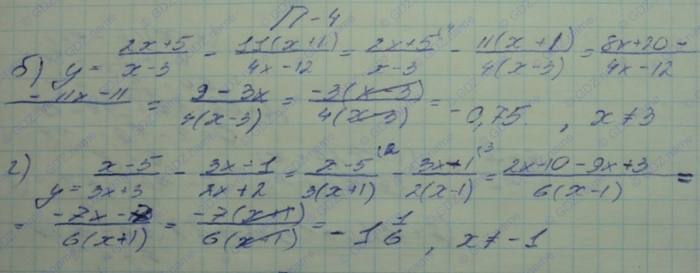 П-4
б) y = (2x+5)/(x-3) - (11(x+1))/(4x-12) = (2x+5)/(x-3) - (11(x+1))/(4(x-3)) = (8x+20-
-11x-11)/(4x-12) = (9-3x)/(4(x-3)) = (-3(x-3))/(4(x-3)) = -0,75, x≠3
г) y = (x-5)/(3x+3) - (3x-1)/(2x+2) = (x-5)/(3(x+1)) - (3x-1)/(2(x-1)) = (2x-10-9x+3)/(6(x-1)) =
= (-7x-7)/(6(x+1)) = (-7(x+1))/(6(x-1)) = -1 1/6, x≠-1